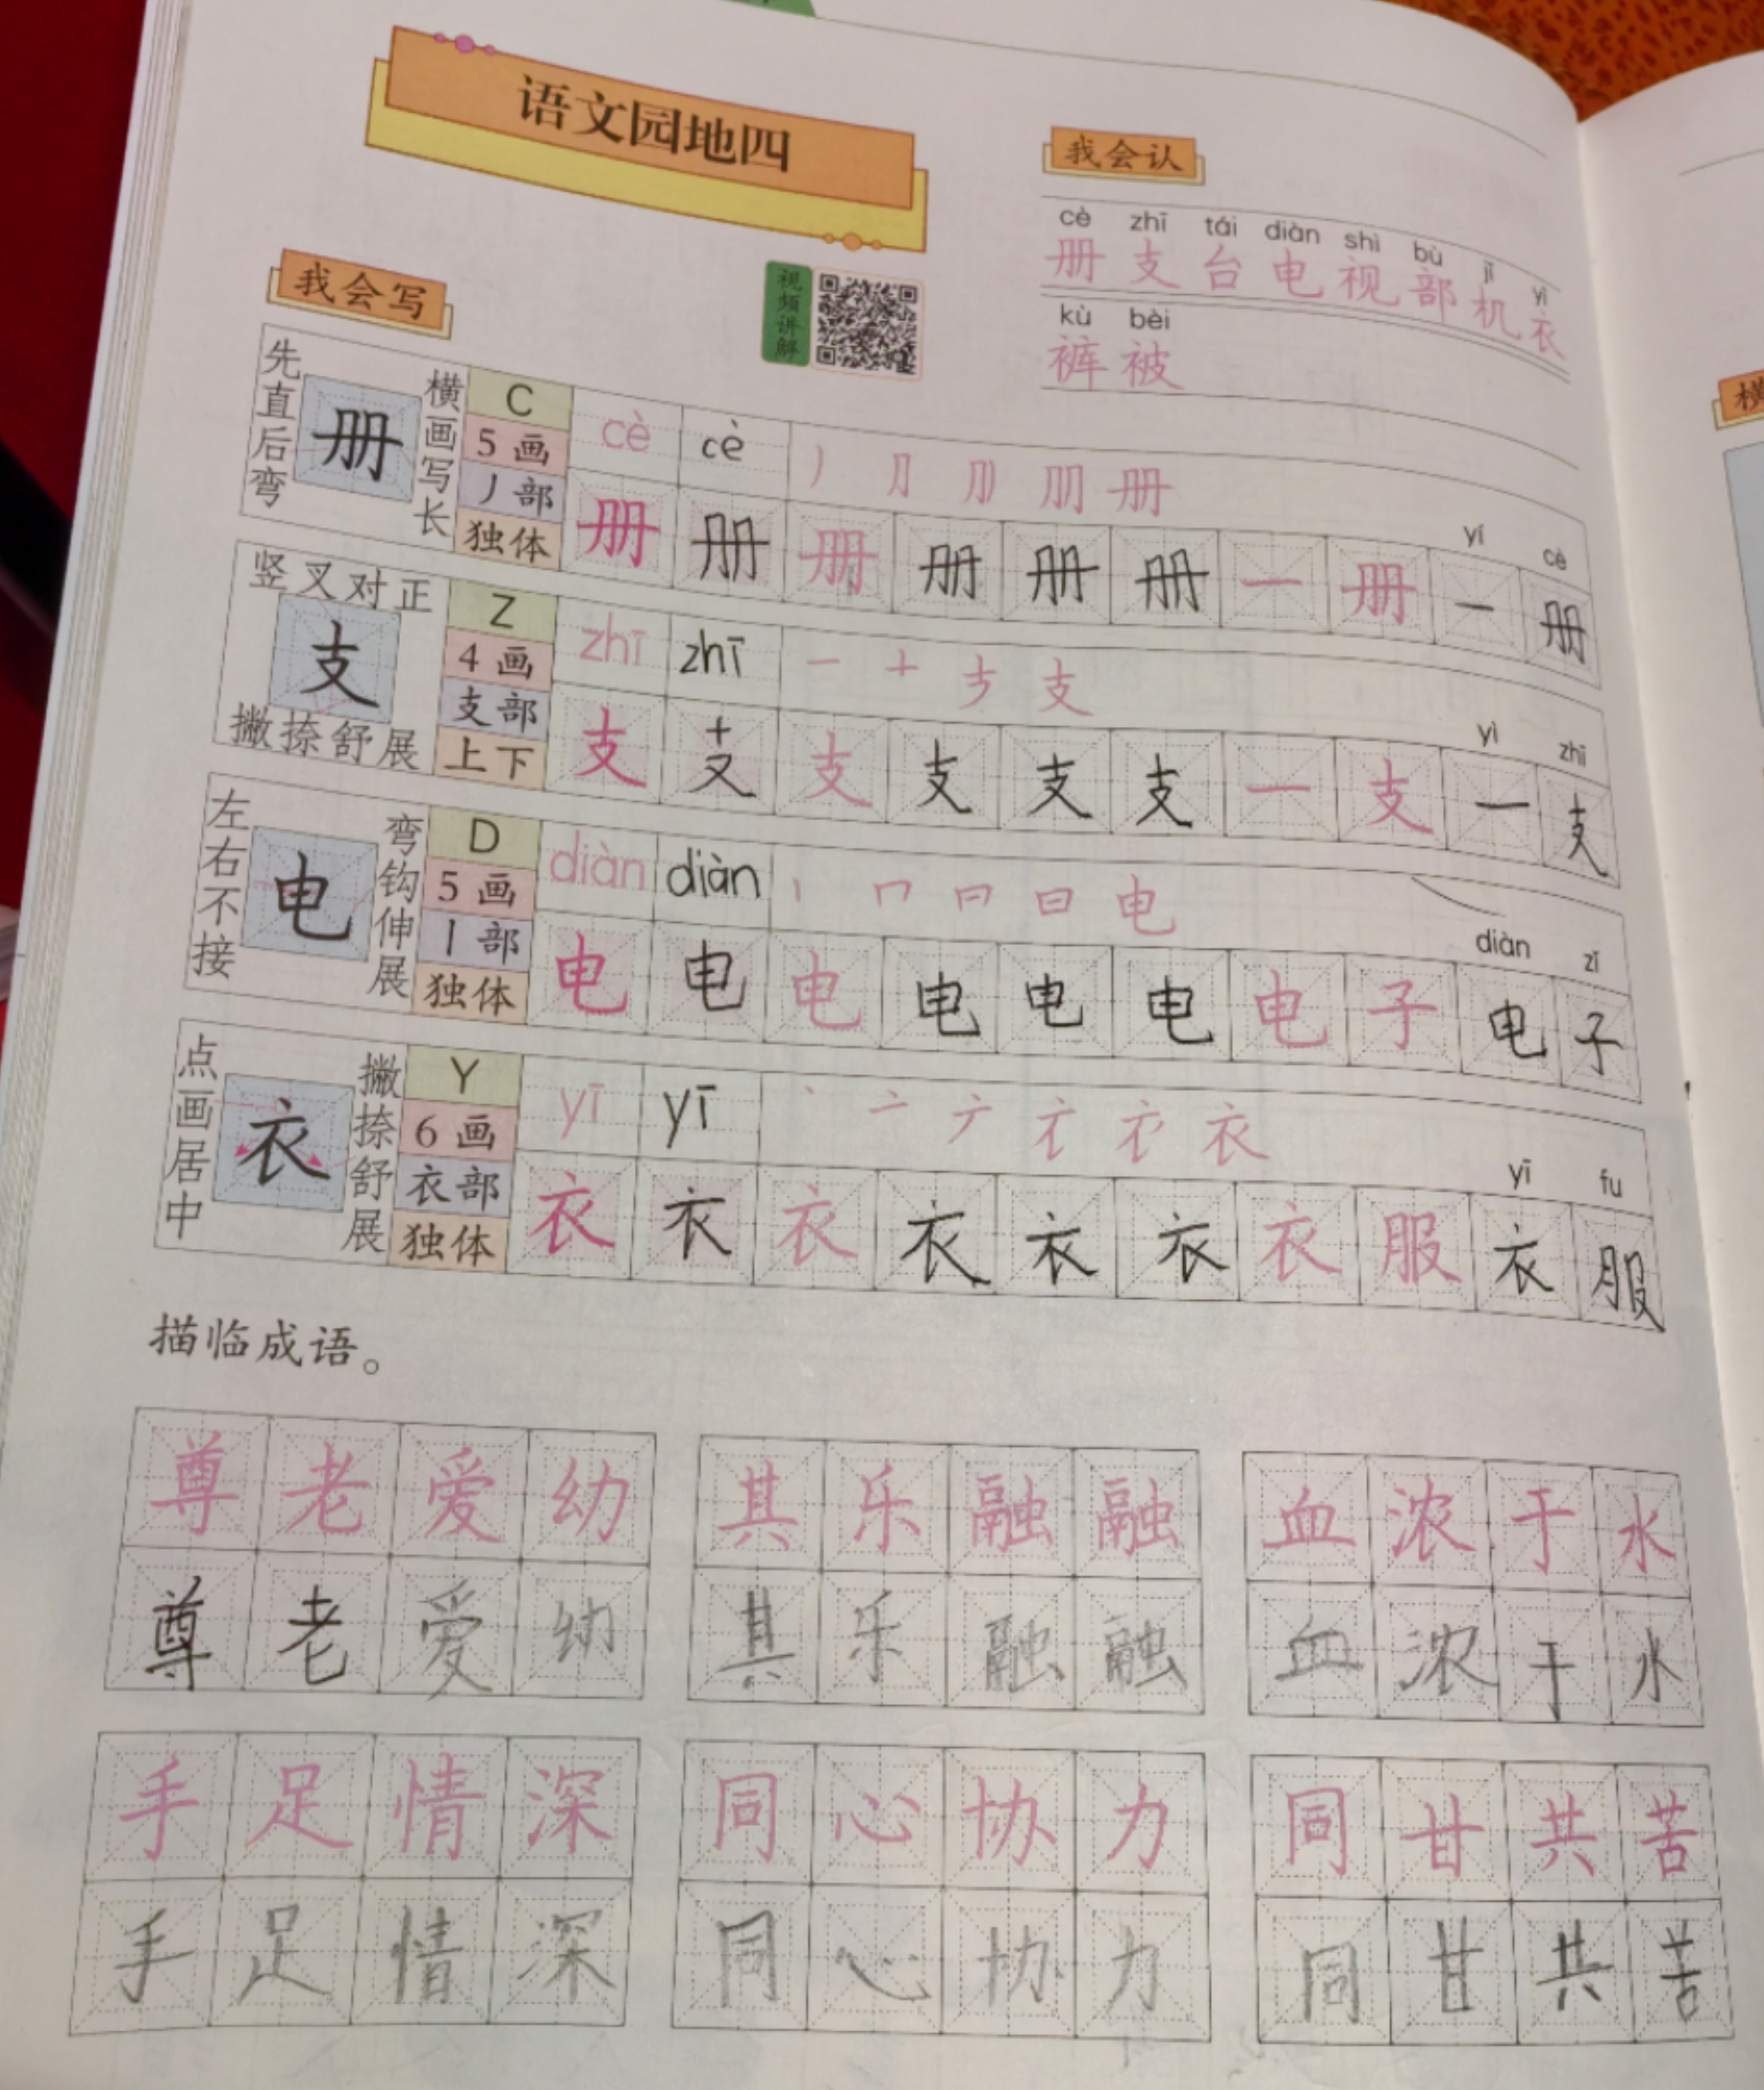 语文园地四
我会认
cè zhī tái diàn shì bù jī yī
册 支 台 电 视 部 机 衣
kù bèi
裤 被
视频讲解
我会写
先直后弯
册
横画写长
C
5 画
丿 部
独体
cè cè 丿 册
册 册 册 册 册 册 一 册 一 册
yí cè
竖叉对正
支
撇捺舒展
Z
4 画
支部
上下
zhī zhī 一 十 支
支 支 支 支 支 支 一 支 一 支
yì zhī
左右不接
电
弯钩伸展
D
5 画
丨 部
独体
diàn diàn 丨 冂 日 电
电 电 电 电 电 电 电 子 电 子
diàn zǐ
点画居中
衣
撇捺舒展
Y
6 画
衣部
独体
yī yī 丶 亠 衣
衣 衣 衣 衣 衣 衣 衣 服 衣 服
yī fu
描临成语。
尊老爱幼 其乐融融 血浓于水
尊老爱幼 其乐融融 血浓于水
手足情深 同心协力 同甘共苦
手足情深 同心协力 同甘共苦